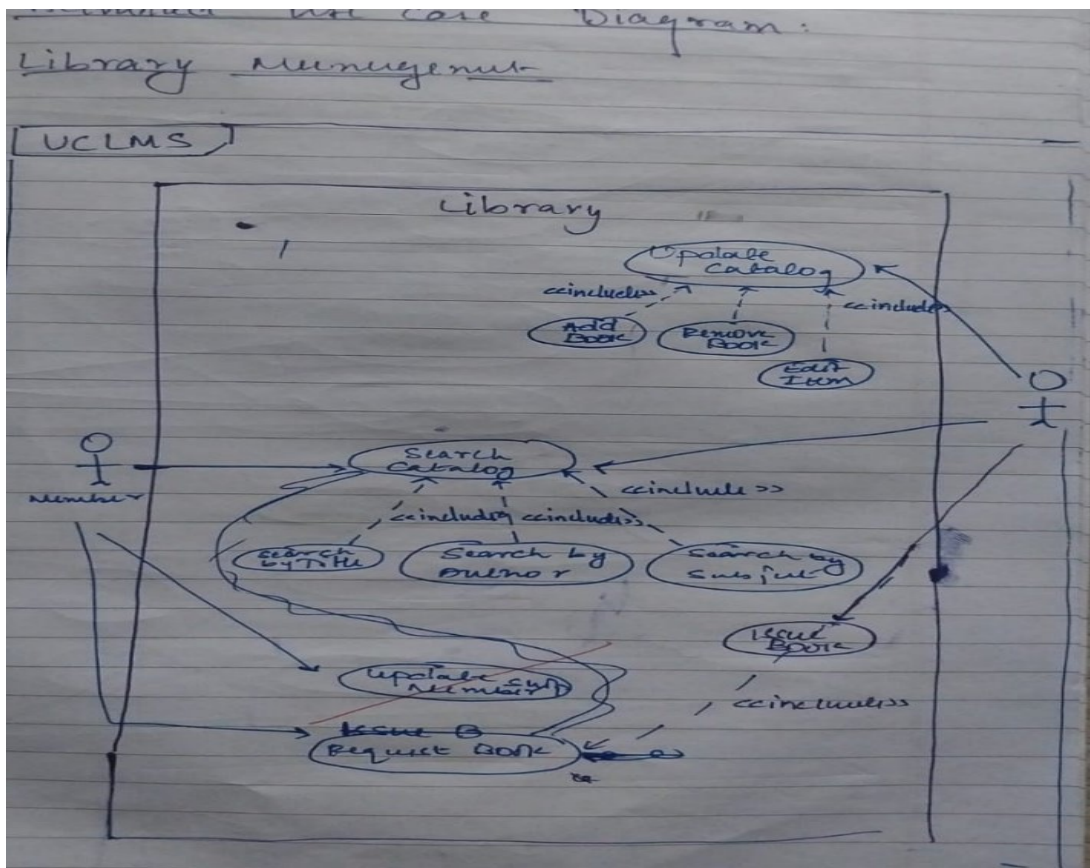 Use Case Diagram:
Library Management
UCLMS
Library
Update
Catalog
<<include>>
<<include>>
Add
Book
Remove
Book
Edit
Item
Search
Catalog
Member
<<include>>
<<include>>
<<include>>
Search
by Title
Search by
Author
Search by
Subject
Issue
Book
Update
Member
<<include>>
Issue B
Request Book